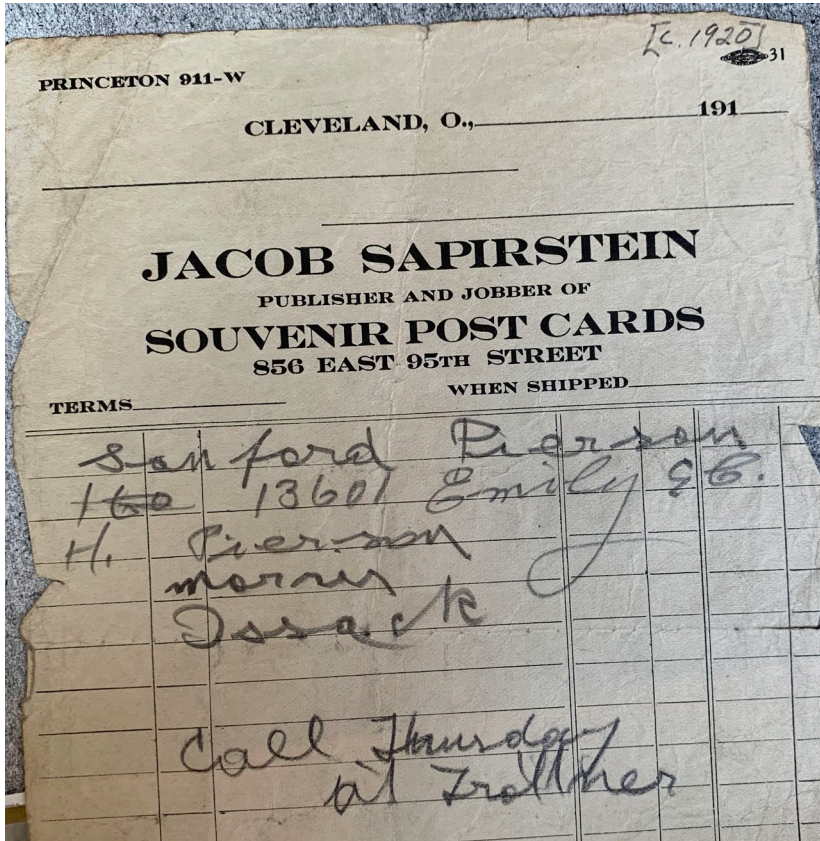 [c. 1920]
31
PRINCETON 911-W
CLEVELAND, O., 191
JACOB SAPIRSTEIN
PUBLISHER AND JOBBER OF
SOUVENIR POST CARDS
856 EAST 95TH STREET
WHEN SHIPPED
TERMS
Sanford Pierson
13601 Emily
H. Pierson
Morris
Issack
Call Thursday
at